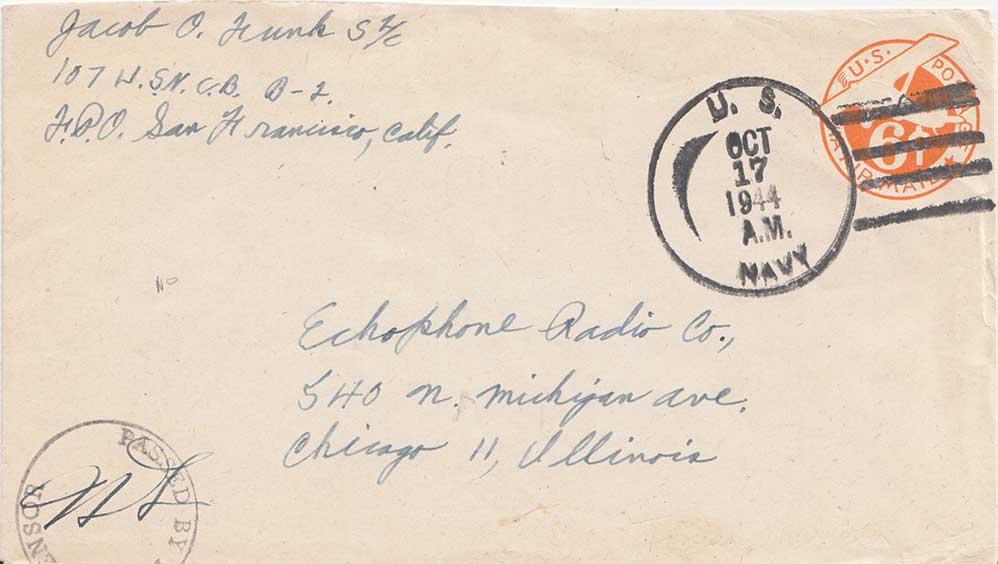 Jacob O. Funk S 2/c
107 U.S.N.C.B. B-2.
F.P.O. San Francisco, Calif.
U. S.
OCT
17
1944
A.M.
NAVY
U.S. POSTAGE
6¢
VIA AIR MAIL
NO
Echophone Radio Co.,
540 N. Michigan Ave.
Chicago 11, Illinois
PASSED BY